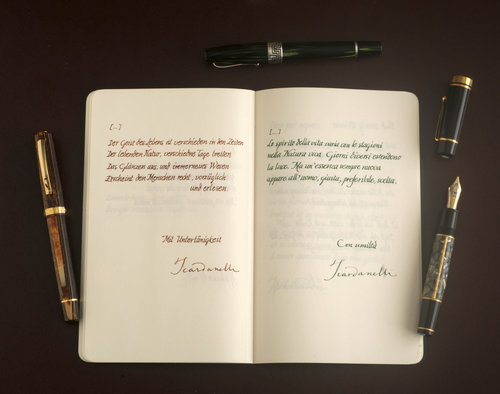 [...]
Der Geist des Lebens ist verschieden in den Zeiten
Der lebenden Natur, verschiedne Tage breiten
Das Glänzen aus, und immerneues Wesen
Erscheint den Menschen recht, vorzüglich
und erlesen.
Mit Untertänigkeit
Scardanelli
[...]
Lo spirito della vita varia con le stagioni
nella Natura viva. Giorni diversi estendono
la luce. Ed un'essenza sempre nuova
appare all'uomo, giusta, preferibile, scelta.
Con umiltà
Scardanelli